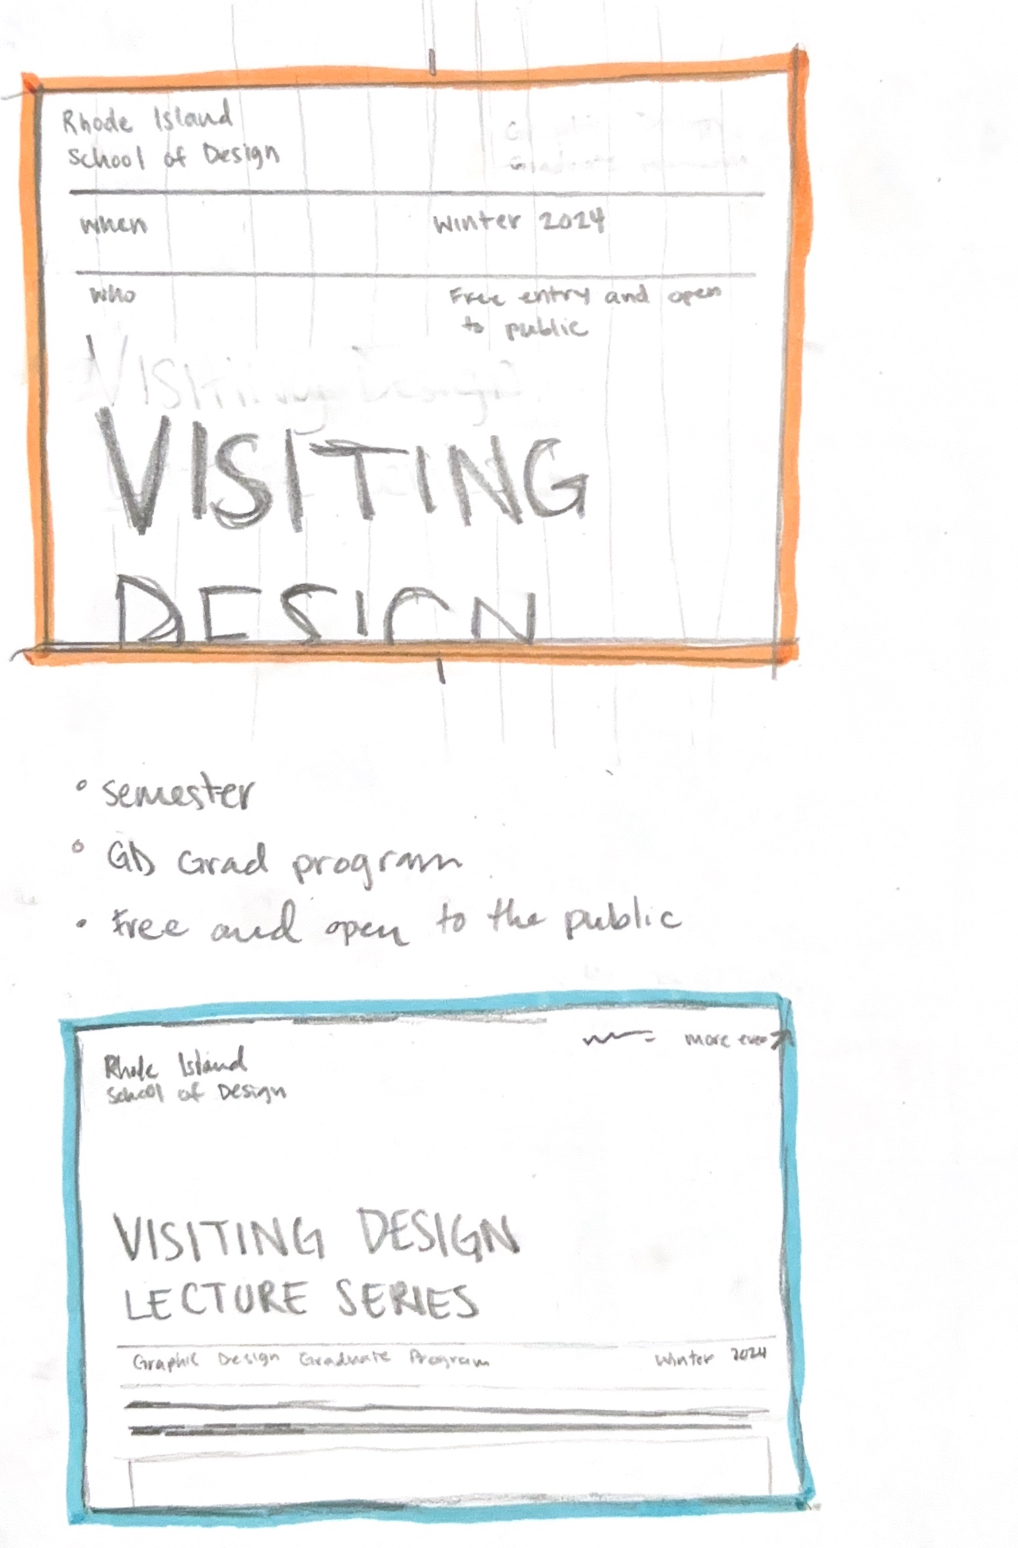 Rhode Island
School of Design
Graduate
when
Winter 2024
who
Free entry and open
to public
Visiting Design
VISITING
DESIGN
• semester
• GD Grad program
• Free and open to the public
Rhode Island
School of Design
more even
VISITING DESIGN
LECTURE SERIES
Graphic Design Graduate Program
Winter 2024